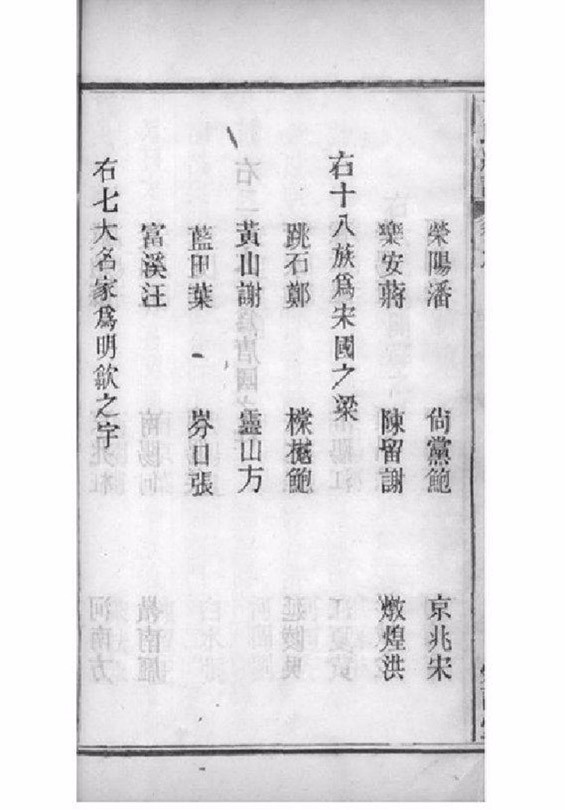 榮陽潘 尙黨鮑 京兆宋
樂安蔣 陳留謝 燉煌洪
右十八族爲宋國之梁
跳石鄭 檪樾鮑
黃山謝 靈山方
藍田葉 岑口張
富溪汪
右七大名家爲明歙之宇